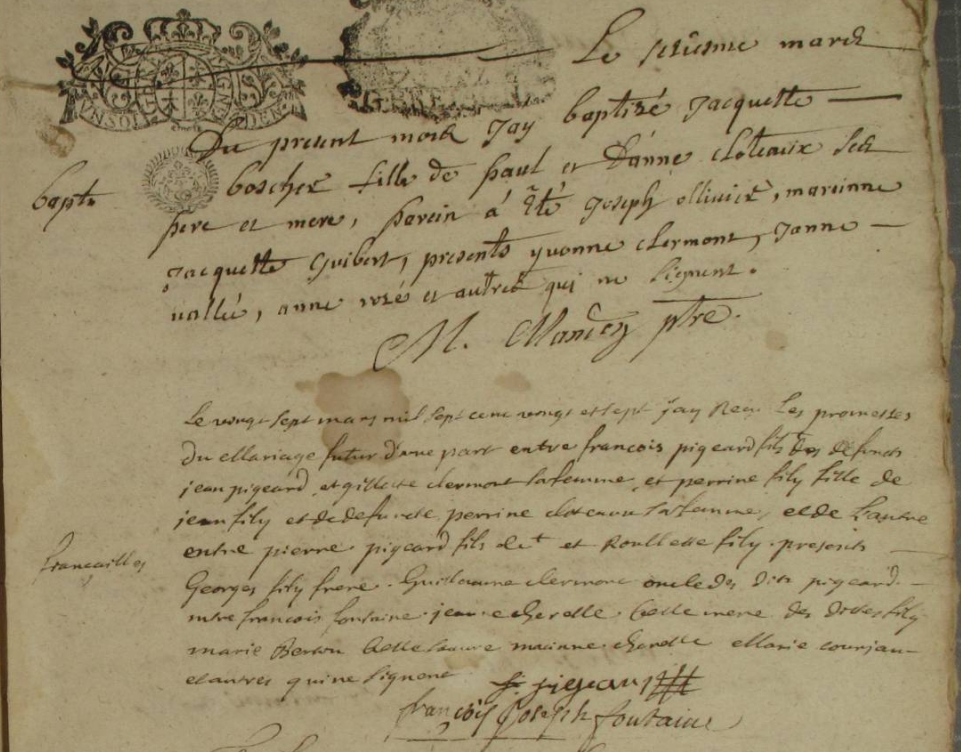 Le seziesme mars
Du present mois J'ay baptizé Jacquette
bapte boscher fille de paul et d'anne cloteaux ses
pere et mere, parein à Joseph ollivier, mareinne
Jacquette Guibert, presents yvonne clermont, Janne
vallée, anne rozé et autres qui ne signent.
M. ptre.
Le vingt sept mars mil sept cent vingt et sept j'ay Les promesses
du Mariage futur d'une part entre françois pigeard fils des defunts
jean pigeard et gillette clermont sa femme, et perrine fily fille de
jean fily et de defuncte perrine cloteaux sa femme, et de L'autre
fiançailles entre pierre pigeard fils de et Roullette fily. presents
Georges fily frere. Guillaume clermont oncle des dits pigeard.
françois fontaine. jeanne cherelle belle mere des dittes fily
marie belle cherelle Marie courjau
et autres qui ne signent
pigeard
françois Joseph fontaine